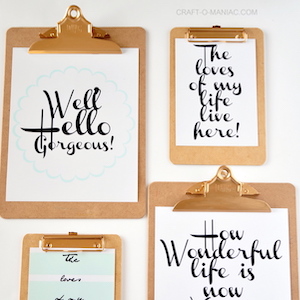 CRAFT-O-MANIAC.COM
Well
Hello
Gorgeous!
The
loves
of my
life
live
here!
The
loves
of my
How
Wonderful
life is
now